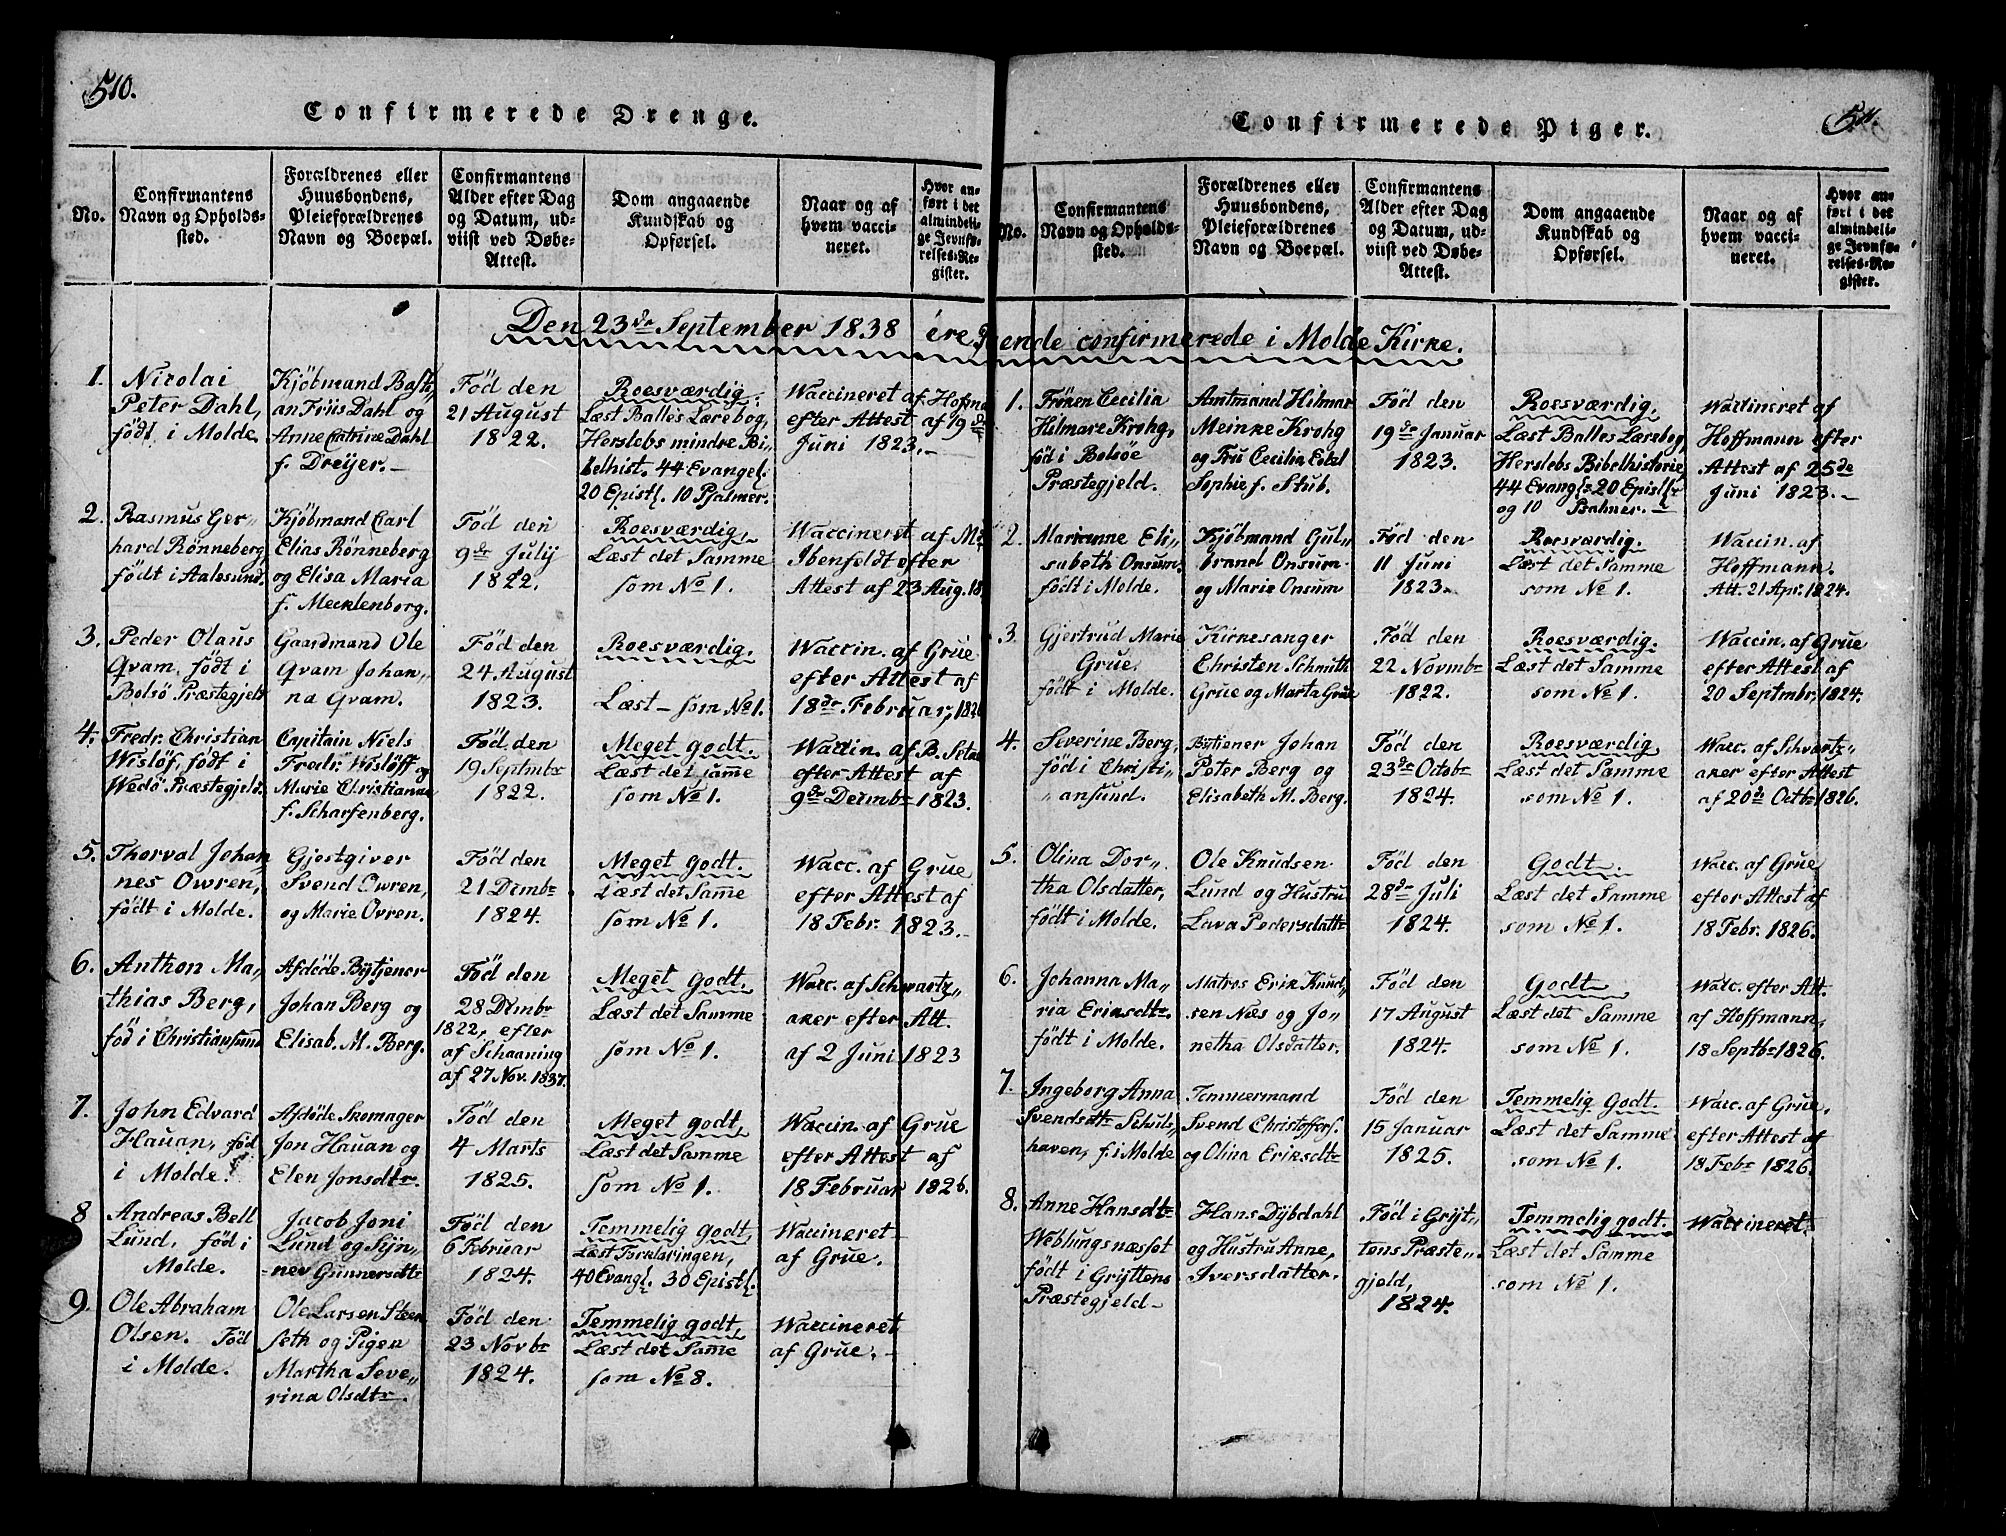 510.
Confirmerede Drenge.
No.
Confirmantens Navn og Opholds-sted.
Forældrenes eller Huusbondens, Pleieforældrenes Navn og Boepæl.
Confirmantens Alder efter Dag og Datum, ud-viist ved Døbe-Attest.
Dom angaaende Kundskab og Opførsel.
Naar og af hvem vacci-neret.
Hvor an-ført i det almindeli-ge Jevnfø-relses-Re-gister.
Den 23de September 1838 ere
1.
Nicolai
Peter Dahl,
født i Molde.
Kjöbmand Basti,,
an Friis Dahl og
Anne Catrine Dahl
f. Dreÿer.-
Fød den
21 August
1822.
Roesværdig.
Læst Balles Lærebog,
Herslebs mindre Bi-
belhist. 44 Evangel:
20 Epistl. 10 Psalmer.
Waccineret af Hofm
efter Attest af 19de
Juni 1823.-
2.
Rasmus Ger-
hard Rönneberg
födt i Aalesund.
Kjöbmand Carl
Elias Rönneberg
og Elisa Maria
f. Mecklenborg.
Fød den
9de Julij
1822.
Roesværdig.
Læst det Samme
som No 1.
Waccineret af
Ibenfeldt efter
Attest af 23 Aug. 18
3.
Peder Olaus
Qvam, født i
Bolsö Præstegjeld
Gaardmand Ole
Qvam Johan,,
na Qvam.
Fød den
24 August
1823.
Roesværdig.
Læst - som No 1.
Waccin. af Grue
efter Attest af
18de Februar, 182
4.
Fredr. Christian
Wislöf, födt i
Wedö Præstegjeld.
Capitain Niels
Fredr. Wislöff og
Marie Christianne
f. Scharfenberg.
Fød den
19 Septmbr
1822.
Meget godt.
Læst det samme
som No 1.
Waccin. af B.
efter Attest af
9de Decmbr 1823.
5.
Thorval Johan
nes Owren,
födt i Molde.
Gjestgiver
Svend Owren,
og Marie Ovren.
Fød den
21 Decmbr
1824.
Meget godt.
Læst det Samme
som No 1.
Wacc. af Grue
efter Attest af
18 Febr. 1823.-
6.
Anthon Ma,,
thias Berg,
föd i Christiansund
Afdöde Bÿtjener
Johan Berg og
Elisab. M. Berg.
Fød den
28 Decmbr
1822, efter
af Schaaning
af 27 Nov. 1837.
Meget godt.
Læst det Samme
som No 1.
Wacc. af Schwartz,,
aker efter Att.
af 2 Juni 1823
7.
John Edvard
Hauan, föd
i Molde.
Afdöde Skomager
Jon Hauan og
Elen Jonsdtr.
Fød den
4 Marts
1825.
Meget godt,
Læst det Samme
som No 1.
Waccin. af Grue
efter Attest af
18 Februar 1826.
8
Andreas Bell
Lund, föd i
Molde.
Jacob Joni
Lund og Sÿn,,
nev Gunnersdtr
Fød den
6 Februar
1824.
Temmelig godt,
Læst Forklaringen,
40 Evangl. 30 Epistl.
Waccineret
af Grue.
9.
Ole Abraham
Olsen. Föd
i Molde.
Ole Larsen Steen
seth og Pigen
Martha Seve,,
rina Olsdtr.
Fød den
23 Novbr
1824.
Temmelig godt,
Læst det Samme
som No 8.
Waccineret
af Grue.-
511.
Confirmerede Piger.
No.
Confirmantens Navn og Opholds-sted.
Forældrenes eller Huusbondens, Pleieforældrenes Navn og Boepæl.
Confirmantens Alder efter Dag og Datum, ud-viist ved Døbe-Attest.
Dom angaaende Kundskab og Opførsel.
Naar og af hvem vacci-neret.
Hvor an-ført i det almindeli-ge Jevnfø-relses-Re-gister.
confirmerede i Molde Kirke.
1.
Fröken Cecilia
Hilmare Krohg,
föd i Bolsöe
Præstegjeld.
Amtmand Hilmar
Meinke Krohg
og Fru Cecilia
Sophie f. Stub.
Fød den
19de Januar
1823.
Roesværdig.
Læst Balles Lærebog,
Herslebs Bibelhistorie
44 Evangl: 20 Epistl:
og 10 Psalmer.-
Waccineret af
Hoffmann efter
Attest af 25de
Juni 1823.-
2.
Marianne Eli,,
sabeth Onsum.
födt i Molde.
Kjöbmand Gul,,
brand Onsum
og Marie Onsum
Fød den
11 Juni
1823.
Roesværdig.
Læst det Samme
som No 1.
Waccin. af
Hoffmann.
Att. 21 Apr. 1824.
3.
Gjertrud Marie
Grue.
födt i Molde.
Kirkesanger
Christen Schmith
Grue og Marta Grue
Fød den
22 Novmbr
1822.
Roesværdig.
Læst det Samme
som No 1.
Waccin. af Grue
efter Attest af
20 Septmbr, 1824.
4.
Severine Berg,
föd i Christi,,
,,ansund.
Bÿtjener Johan
Peter Berg og
Elisabeth M. Berg.
Fød den
23de Octobr
1824.
Roesværdig
Læst det Samme
som No 1.
Wacc. af Schvartz,,
aker efter Attest
af 20de Octbr 1826.
5.
Olina Dor,,
tha Olsdatter,
födt i Molde.
Ole Knudsen
Lund og Hustru
Lava Pedersdattr
Fød den
28de Juli
1824.
Godt.
Læst det Samme
som No 1.
Wacc. af Grue
efter Attest af
18 Febr. 1826.
6.
Johanna Ma,,
ria Eriksdtr.
födt i Molde.
Matros Erik Knud,,
sen Næs og Jo,,
netha Olsdatter.
Fød den
17 August
1824.
Godt
Læst det Samme
som No 1.
Wacc. efter Att.
af Hoffmann,
18 Septbr 1826.
7.
Ingeborg Anna
Svendsdtr Schuls,,
haven, f. i Molde
Temmermand
Svend Christoffers.
og Olina Eriksdtr
Fød den
15 Januar
1825.
Temmelig godt.
Læst det Samme
som No 1.
Wacc. af Grue.
efter Attest af
18 Febr 1826.
8.
Anne Hansdtr
Weblungsnæsset
födt i Grÿttens
Præstegjeld-
Hans Dÿbdahl
og Hustru Anne,
Iversdatter.
Fød i Grÿt,,
tens Præste,,
gjeld,
1824.
Temmelig godt.
Læst det Samme
som No 1.
Waccineret